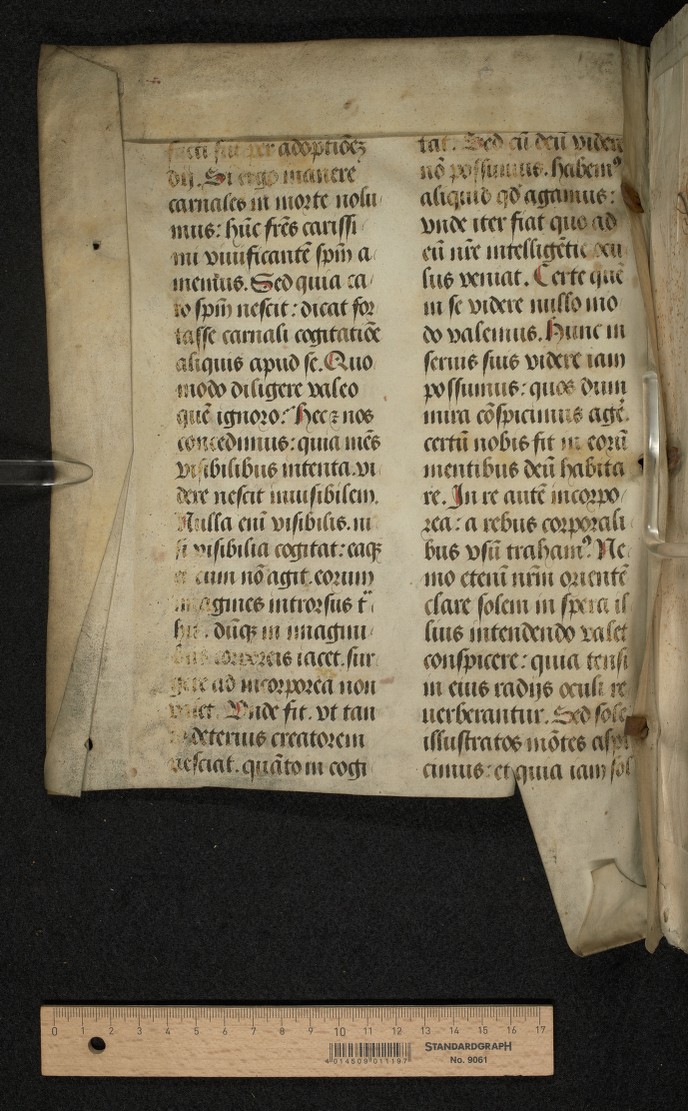 facti sūt per adoptiōeꝫ
dij. Si ergo manere
carnales in morte nolu
mus: hūc fres̄ carissi
mi viuificantē sp̄m a
memus. Sed quia ca
ro sp̄m nescit: dicat for
tasse carnali cogitatiōe
aliquis apud se. Quo
modo diligere valeo
quē ignoro: Hec ⁊ nos
concedimus: quia mēs
visibilibus intenta. vi
dere nescit inuisibilem.
Nulla eni᷒ visibilis. ni
si visibilia cogitat: eaqꝫ
cum nō agit. eorum
imagines introrsus t̄
hit. dūqꝫ in imagini
bus corporeis iacet. sur
gere ad incorporea non
valet. Vnde fit. vt tan
deterius creatorem
nesciat. quāto in cogi
tat. Sed cū deū videre
nō possumus. habem᷒
aliquid qd̄ agamus:
vnde iter fiat quo ad
eū nr̄e intelligētie ocu
lus veniat. Certe quē
in se videre nullo mo
do valemus. Hunc in
seruis suis videre iam
possumus: quos dum
mira cōspicimus agē.
certū nobis fit in eorū
mentibus deū habita
re. In re autē incorpo
rea: a rebus corporali
bus vsū traham᷒. Ne
mo eteni᷒ nr̄m orientē
clare solem in spera il
lius intendendo valet
conspicere: quia tensi
in eius radijs oculi re
uerberantur. Sed sole
illustratos mōtes aspi
cimus: et quia iam sol
0 1 2 3 4 5 6 7 8 9 10 11 12 13 14 15 16 17
STANDARDGRAPH
No. 9061
4 014509 011197